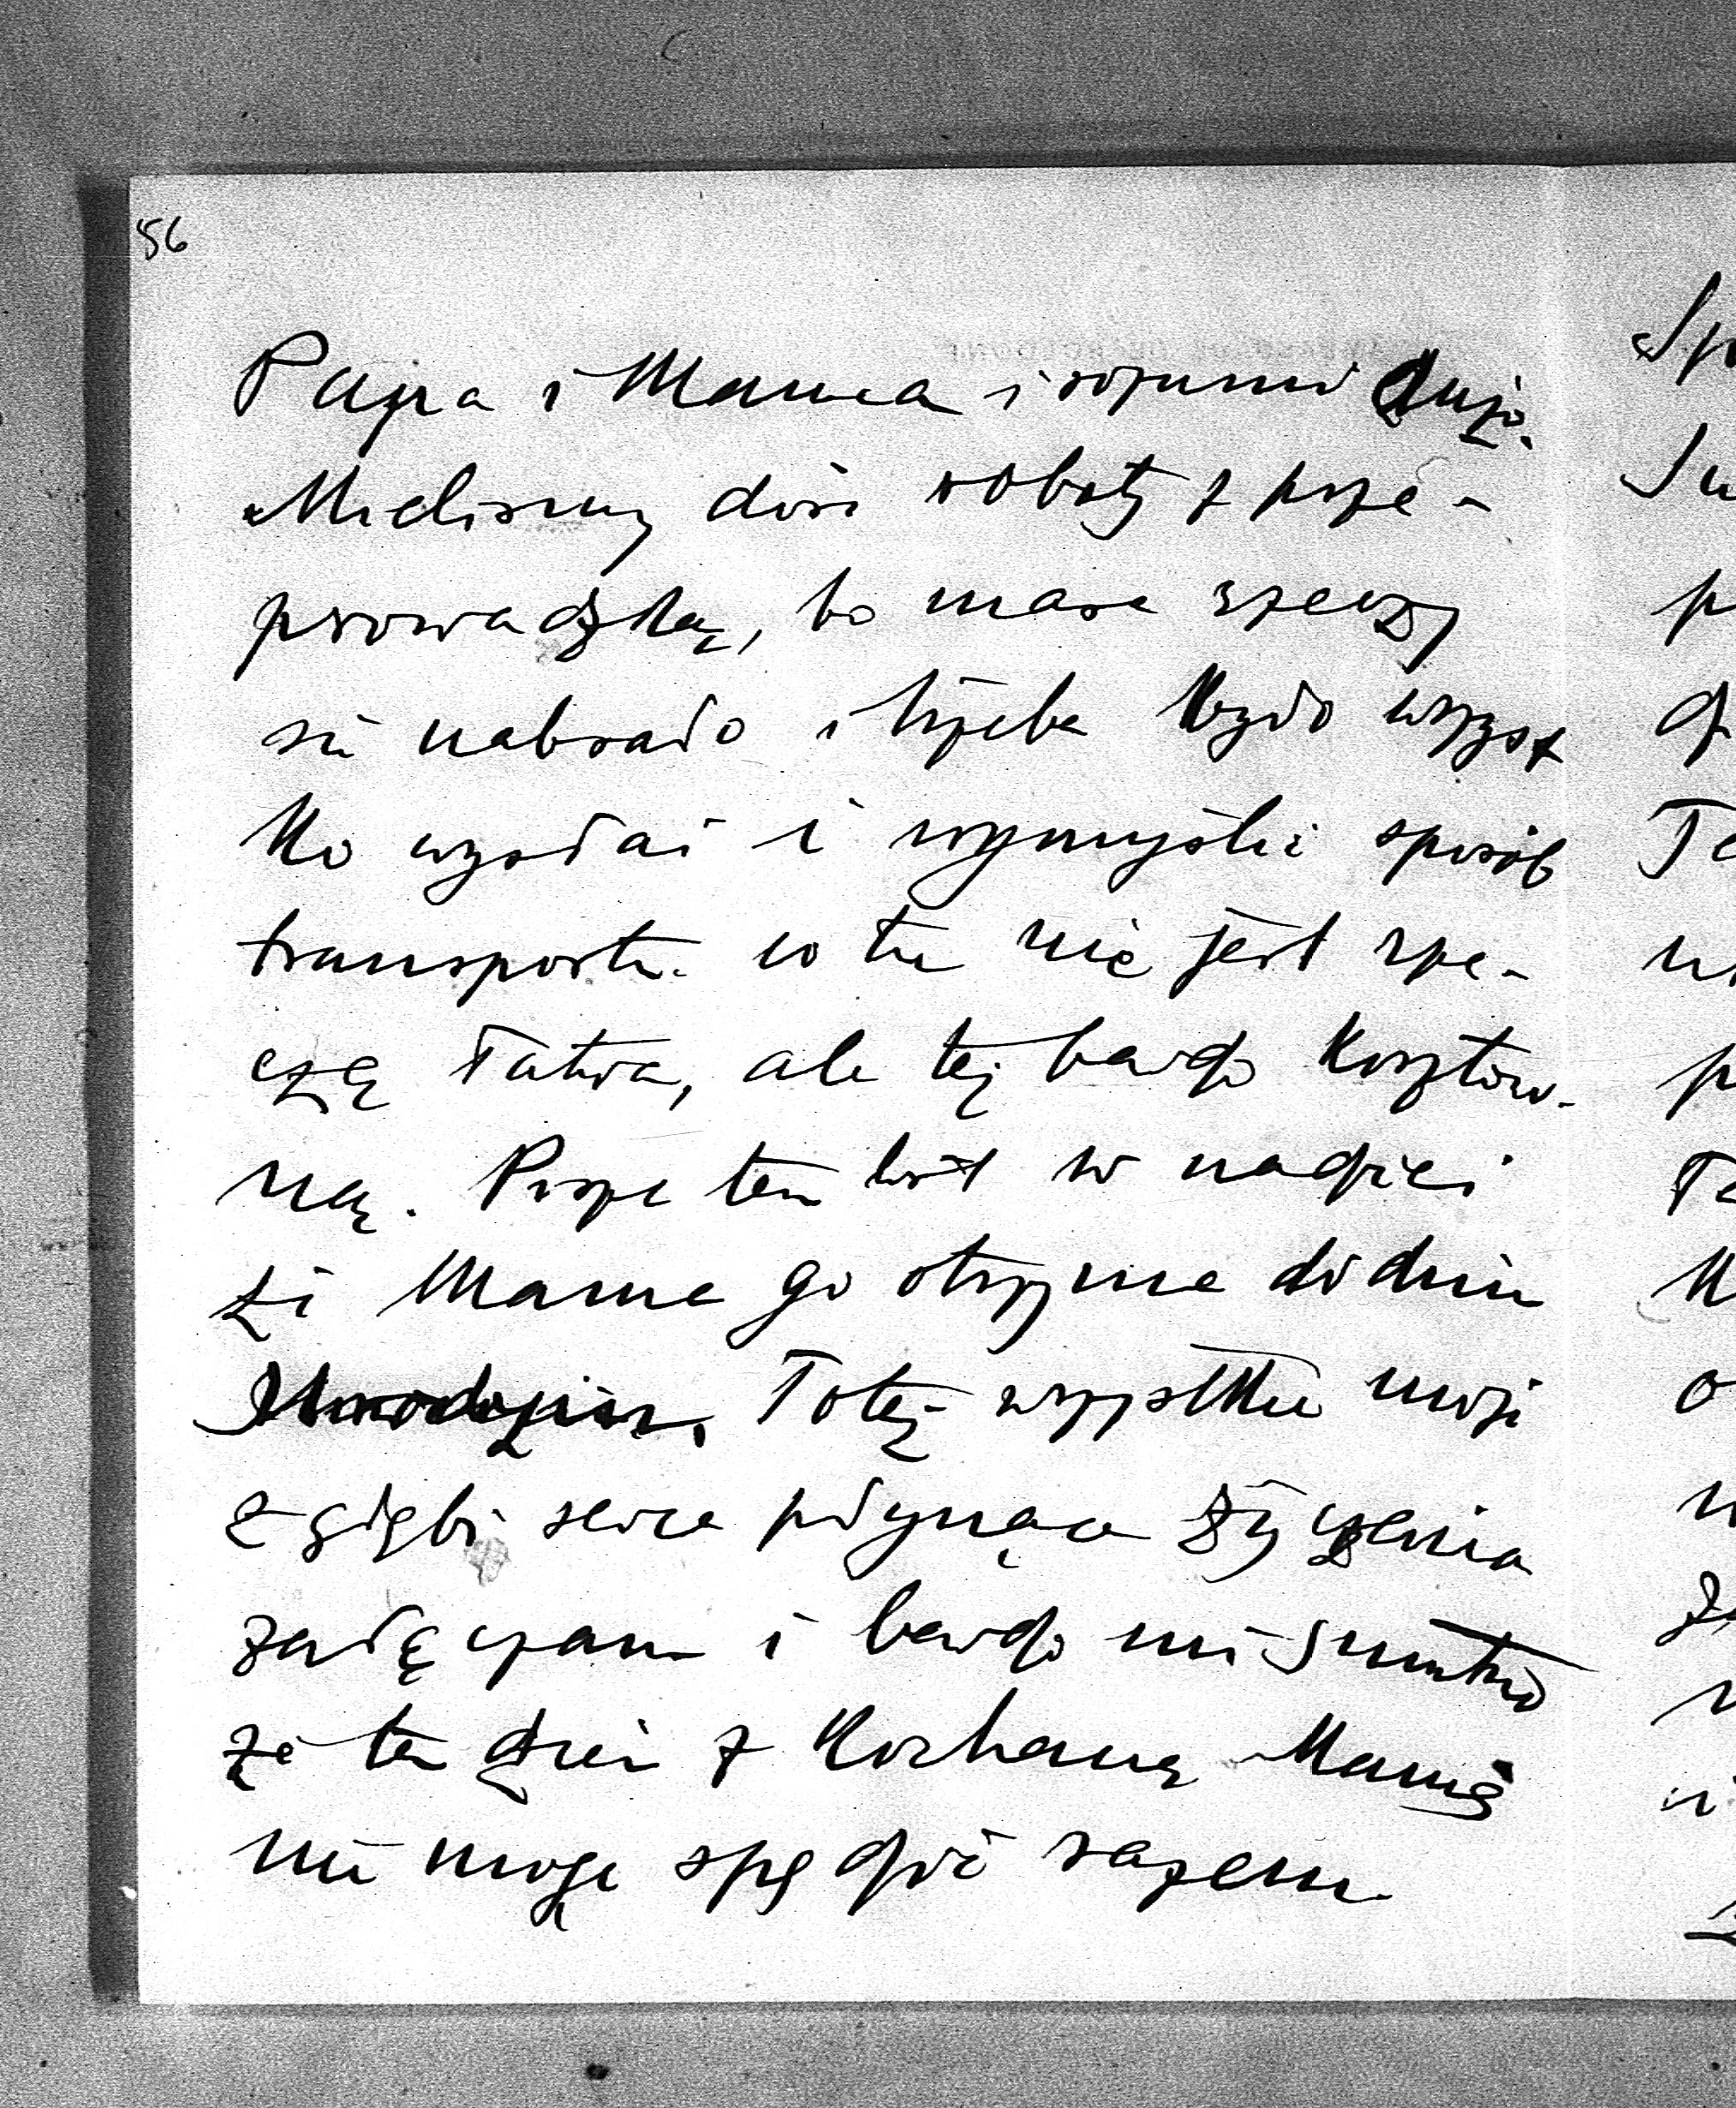 56
Papa i Mama i rozumie dużo.
Mieliśmy dość roboty z prze-
prowadzką, bo masa rzeczy
się nabrało i trzeba było wszyst
ko wysłać i wymyślić sposób
transportu co tu nie jest rze-
czą łatwą, ale też bardzo kosztow-
ną. Piszę ten list w nadziei
że Mama go otrzyma do dnia
Urodzin. Toteż wszystkie moje
z głębi serca płynące życzenia
załączam i bardzo mi smutno
że ten dzień z Kochaną Mamą
nie mogę spędzić razem